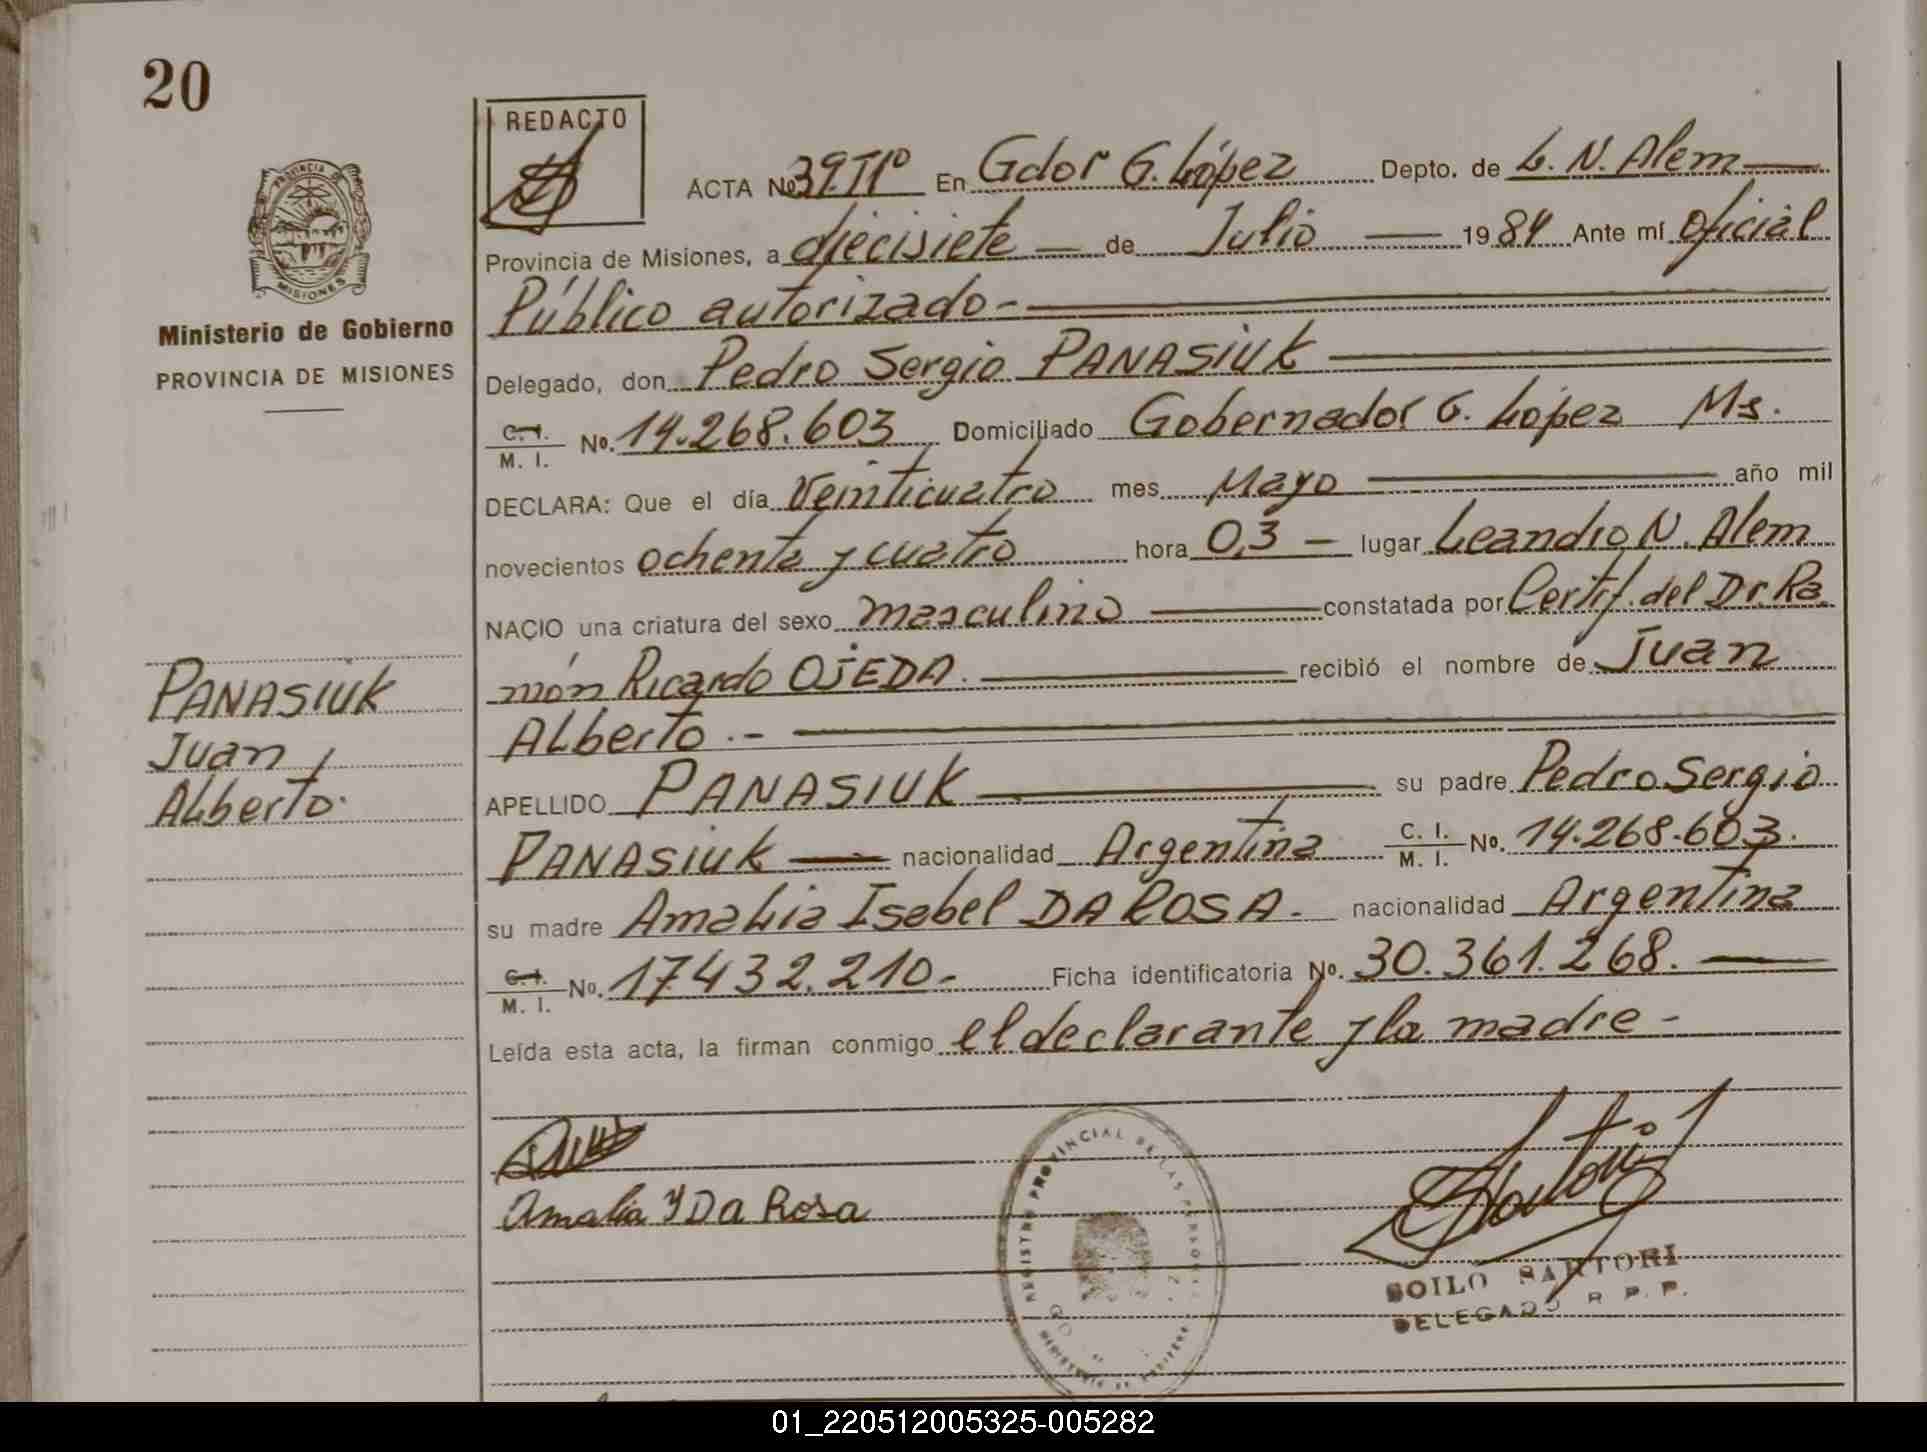 20
REDACTO
PROVINCIA DE
MISIONES
Ministerio de Gobierno
PROVINCIA DE MISIONES
ACTA No 39.TIº En Gdor G. López Depto. de L. N. Alem
Provincia de Misiones, a diecisiete de Julio 1984 Ante mí Oficial
Público autorizado-
Delegado, don Pedro Sergio PANASIUK
C. I. / M. I. No. 14.268.603 Domiciliado Gobernador G. López Ms.
DECLARA: Que el día Veinticuatro mes Mayo año mil
novecientos ochenta y cuatro hora 0,3 - lugar Leandro N. Alem
NACIO una criatura del sexo masculino constatada por Certif. del Dr. Ra
món Ricardo OJEDA. recibió el nombre de Juan
Alberto.-
PANASIUK
Juan
Alberto.
APELLIDO PANASIUK su padre Pedro Sergio
PANASIUK nacionalidad Argentina C. I. / M. I. No. 14.268.603.
su madre Amalia Isabel DA ROSA. nacionalidad Argentina
C. I. / M. I. No. 17432.210.- Ficha identificatoria No. 30.361.268.
Leída esta acta, la firman conmigo el declarante y la madre -
Amalia I Da Rosa
REGISTRO PROVINCIAL DE LAS PERSONAS
SOILO SARTORI
DELEGADO R. P. P.
01_220512005325-005282